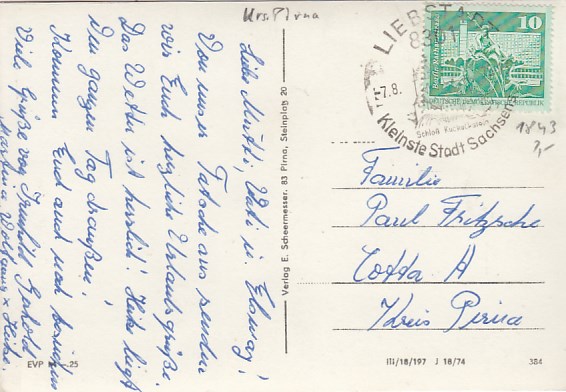 Krs. Pirna
Liebe Mutti, Vati u.
Von unser Tatsche aus senden
wir Euch herzliche Urlaubsgrüße.
Das Wetter ist herrlich! Heute liegt
Den ganzen Tag draußen!
Kommen Euch auch noch besuchen
Viele Grüße von
EVP M -,25
Verlag E. Scheermesser. 83 Pirna, Steinplatz 20
LIEBSTADT
8301
-7.8.
Schloß Kuckuckstein
Kleinste Stadt Sachsens
10
DEUTSCHE DEMOKRATISCHE REPUBLIK
1843
3,-
Familie
Paul Fritzsche
Cotta A
Kreis Pirna
III/18/197 J 18/74
384